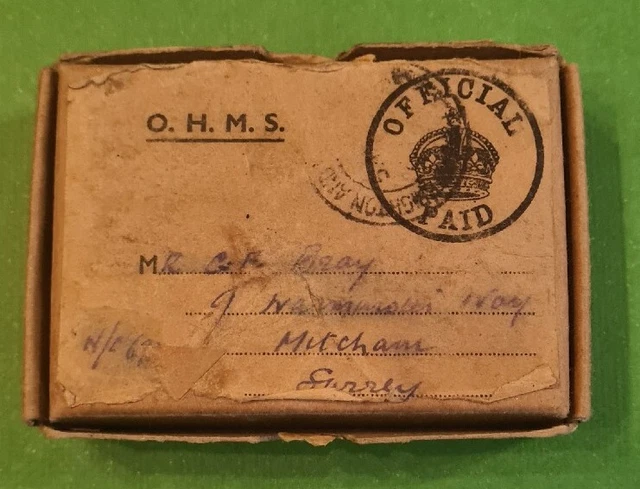 O. H. M. S.
OFFICIAL
PAID
TON AND
MR C.F. Bray
9 Way
Mitcham
Surrey